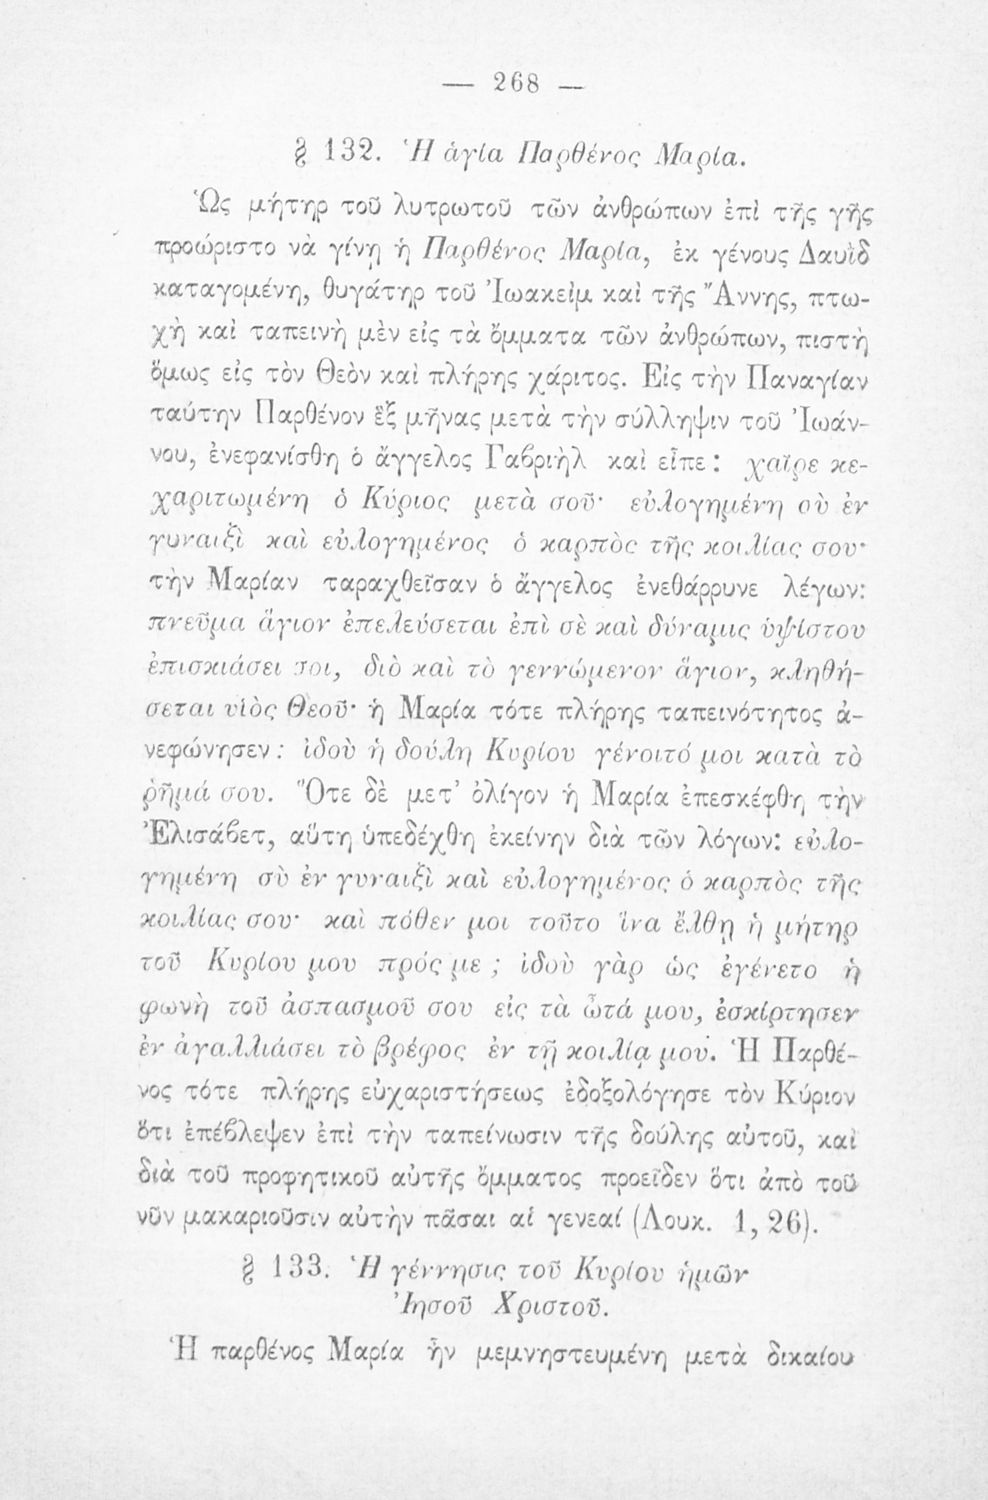 — 268 —
§ 132. Ἡ ἁγία Παρθένος Μαρία.
Ὡς μήτηρ τοῦ λυτρωτοῦ τῶν ἀνθρώπων ἐπὶ τῆς γῆς
προώριστο νὰ γίνῃ ἡ Παρθένος Μαρία, ἐκ γένους Δαυῒδ
καταγομένη, θυγάτηρ τοῦ Ἰωακεὶμ καὶ τῆς Ἄννης, πτω-
χὴ καὶ ταπεινὴ μὲν εἰς τὰ ὄμματα τῶν ἀνθρώπων, πιστὴ
ὅμως εἰς τὸν Θεὸν καὶ πλήρης χάριτος. Εἰς τὴν Παναγίαν
ταύτην Παρθένον ἓξ μῆνας μετὰ τὴν σύλληψιν τοῦ Ἰωάν-
νου, ἐνεφανίσθη ὁ ἄγγελος Γαβριὴλ καὶ εἶπε: χαῖρε κε-
χαριτωμένη ὁ Κύριος μετὰ σοῦ· εὐλογημένη σὺ ἐν
γυναιξὶ καὶ εὐλογημένος ὁ καρπὸς τῆς κοιλίας σου·
τὴν Μαρίαν ταραχθεῖσαν ὁ ἄγγελος ἐνεθάρρυνε λέγων:
πνεῦμα ἅγιον ἐπελεύσεται ἐπὶ σὲ καὶ δύναμις ὑψίστου
ἐπισκιάσει σοι, διὸ καὶ τὸ γεννώμενον ἅγιον, κληθή-
σεται υἱὸς Θεοῦ· ἡ Μαρία τότε πλήρης ταπεινότητος ἀ-
νεφώνησεν: ἰδοὺ ἡ δούλη Κυρίου γένοιτό μοι κατὰ τὸ
ῥῆμά σου. Ὅτε δὲ μετ' ὀλίγον ἡ Μαρία ἐπεσκέφθη τὴν
Ἐλισάβετ, αὕτη ὑπεδέχθη ἐκείνην διὰ τῶν λόγων: εὐλο-
γημένη σὺ ἐν γυναιξὶ καὶ εὐλογημένος ὁ καρπὸς τῆς
κοιλίας σου· καὶ πόθεν μοι τοῦτο ἵνα ἔλθῃ ἡ μήτηρ
τοῦ Κυρίου μου πρός με ; ἰδοὺ γὰρ ὡς ἐγένετο ἡ
φωνὴ τοῦ ἀσπασμοῦ σου εἰς τὰ ὦτά μου, ἐσκίρτησεν
ἐν ἀγαλλιάσει τὸ βρέφος ἐν τῇ κοιλίᾳ μου. Ἡ Παρθέ-
νος τότε πλήρης εὐχαριστήσεως ἐδοξολόγησε τὸν Κύριον
ὅτι ἐπέβλεψεν ἐπὶ τὴν ταπείνωσιν τῆς δούλης αὐτοῦ, καὶ
διὰ τοῦ προφητικοῦ αὐτῆς ὄμματος προεῖδεν ὅτι ἀπὸ τοῦ
νῦν μακαριοῦσιν αὐτὴν πᾶσαι αἱ γενεαί (Λουκ. 1, 26).
§ 133. Ἡ γέννησις τοῦ Κυρίου ἡμῶν
Ἰησοῦ Χριστοῦ.
Ἡ παρθένος Μαρία ἦν μεμνηστευμένη μετὰ δικαίου